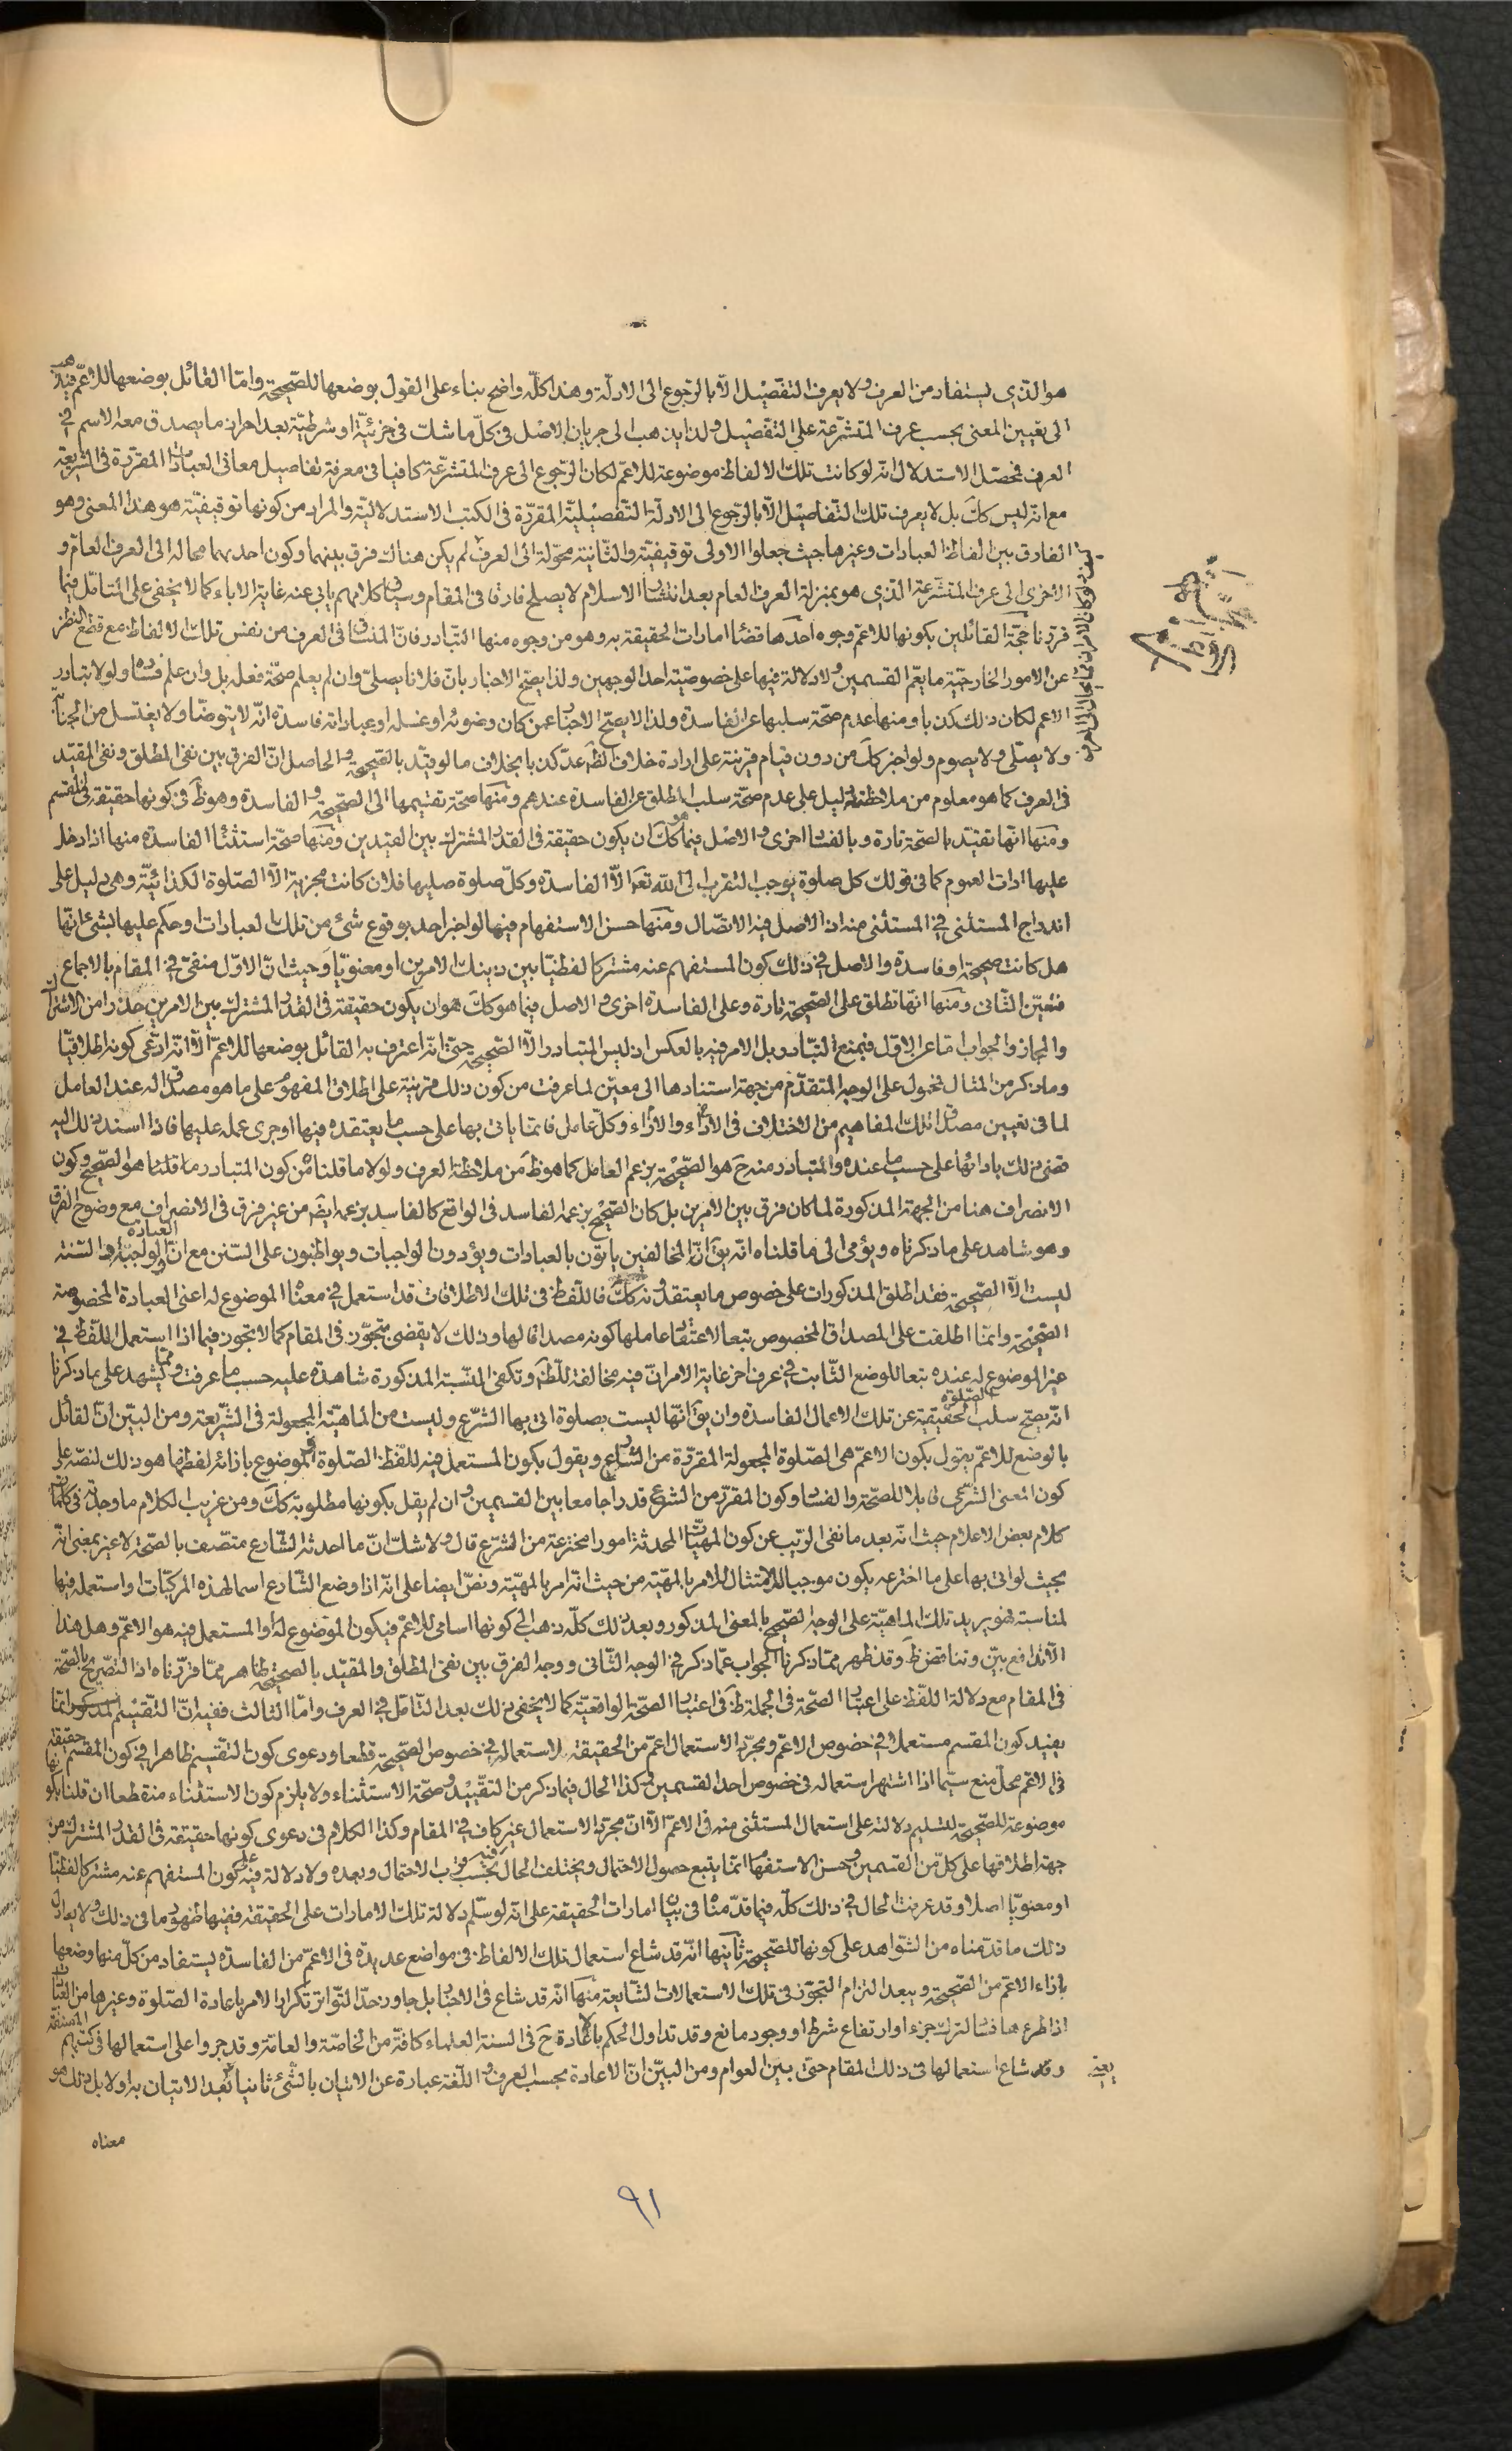 هو الذي يستفاد من العرف ولا يعرف التفصيل الا بالرجوع الى الادلة وهذا كله واضح بناء على القول بوضعها للصحيحة واما القائل بوضعها للاعم فيذهب
الى تعيين المعنى بحسب عرف المتشرعة على التفصيل ولذا يذهب الى جريان الاصل في كل ما شك في جزئيته او شرطيته بعد احراز ما يصدق معه الاسم في
العرف فمحصل الاستدلال انه لو كانت تلك الالفاظ موضوعة للاعم لكان الرجوع الى عرف المتشرعة كافيا في معرفة تفاصيل معاني العبادات المقررة في الشريعة
مع انه ليس كك بل لا يعرف تلك التفاصيل الا بالرجوع الى الادلة التفصيلية المقررة في الكتب الاستدلالية والمراد من كونها توقيفية هو هذا المعنى وهو
الفارق بين الفاظ العبادات وغيرها حيث جعلوا الاولى توقيفية والثانية محولة الى العرف لم يكن هناك فرق بينهما وكون احدهما محالة الى العرف العام و
الاخرى الى عرف المتشرعة الذي هو بمنزلة العرف العام بعد انتشار الاسلام لا يصلح فارقا في المقام وسياق كلامهم يابى عنه غاية الاباء كما لا يخفى على المتامل فيما
قررنا حجة القائلين بكونها للاعم وجوه احدها قضاء امارات الحقيقة به وهو من وجوه منها التبادر فان المنساق في العرف من نفس تلك الالفاظ مع قطع النظر
عن الامور الخارجية ما يعم القسمين ولا دلالة فيها على خصوصية احد الوجهين ولذا يصح الاخبار بان فلانا يصلي وان لم يعلم صحة فعله بل وان علم فساده ولو لا تبادر
الاعم لكان ذلك كذبا ومنها عدم صحة سلبها عن الفاسدة ولذا لا يصح الاخبار عمن كان وضوئه او غسله او عباداته فاسدة انه لا يتوضا ولا يغتسل من الجنابة
ولا يصلي ولا يصوم ولو اخبر كك من دون قيام قرينة على ارادة خلاف الظ عد كذبا بخلاف ما لو قيد بالصحيحة والحاصل ان الفرق بين نفى المطلق ونفى المقيد
في العرف كما هو معلوم من ملاحظته دليل على عدم صحة سلب المطلق عن الفاسدة عندهم ومنها صحة تقسيمها الى الصحيحة والفاسدة وهو ظ في كونها حقيقة في المقسم
ومنها انها تقيد بالصحة تارة وبالفساد اخرى والاصل فيما هو كك ان يكون حقيقة في القدر المشترك بين القيدين ومنها صحة استثناء الفاسدة منها اذا دخل
عليها ادات العموم كما في قولك كل صلوة يوجب التقرب الى الله تعالى الا الفاسدة وكل صلوة صليها فلان كانت مجزية الا الصلوة الكذائية وهي دليل على
اندراج المستثنى في المستثنى منه اذ الاصل فيه الاتصال ومنها حسن الاستفهام فيها لو اخبر احد بوقوع شئ من تلك العبادات او حكم عليها بشئ انها
هل كانت صحيحة او فاسدة والاصل في ذلك كون المستفهم عنه مشتركا لفظيا بين ذينك الامرين او معنويا وحيث ان الاول منفى في المقام بالاجماع
فتعين الثانى ومنها انها تطلق على الصحيحة تارة وعلى الفاسدة اخرى والاصل فيما هو كك هو ان يكون حقيقة في القدر المشترك بين الامرين حذرا من الاشتراك
والمجاز والجواب اما عن الاول فبمنع التبادر بل الامر فيه بالعكس اذ ليس المتبادر الا الصحيحة حتى انه اعترف به القائل بوضعها للاعم الا انه ادعى كونه اطلاقيا
وما ذكر من المثال محمول على الوجه المتقدم من جهة استنادها الى معين لما عرفت من كون ذلك قرينة على اطلاق المفهوم على ما هو مصداق له عند العامل
لما في تعيين مصداق تلك المفاهيم من الاختلاف في الاراء وكل عامل فانما ياتى بها على حسب ما يعتقده فيها او جرى عمله عليها فاذا اسند ذلك اليه
قضى ذلك بادائها على حسب ما عنده والمتبادر منه ح هو الصحيحة بزعم العامل كما هو ظ من ملاحظة العرف ولو لا ما قلنا من كون المتبادر ما قلنا هو الصحيح وكون
الانصراف هنا من الجهة المذكورة لما كان فرق بين الامرين بل كان الصحيح بزعمه الفاسد في الواقع كالفاسد بزعمه ايضا من غير فرق في الانصراف مع وضوح الفرق
وهو شاهد على ما ذكرناه ويؤمى الى ما قلناه انه يق ان المخالفين ياتون بالعبادات ويؤدون الواجبات ويواظبون على السنن مع ان العبادة الواجبة والسنة
ليست الا الصحيحة فقد اطلق المذكورات على خصوص ما يعتقدونه كك فاللفظ في تلك الاطلاقات قد استعمل في معناه الموضوع له اعنى العبادة المخصوصة
الصحيحة وانما اطلقت على المصداق المخصوص تبعا لاعتقاد عاملها كونه مصداقا لها وذلك لا يقضى بتجوز في المقام كما لا تجوز فيما اذا استعمل اللفظ في
غير الموضوع له عنده تبعا للوضع الثابت في عرف اخر غاية الامر ان فيه مخالفة للظ وتكفى النسبة المذكورة شاهدة عليه حسب ما عرفت ومما يشهد على ما ذكرنا
انه يصح سلب الصلوة الحقيقية عن تلك الاعمال الفاسدة وان يق انها ليست بصلوة اتى بها الشرع وليست من الماهية المجعولة في الشريعة ومن البين ان القائل
بالوضع للاعم يقول بكون الاعم هى الصلوة المجعولة المقررة من الشارع ويقول بكون المستعمل فيه للفظ الصلوة والموضوع بازائه لفظها هو ذلك لنصه على
كون المعنى الشرعى قابلا للصحة والفساد وكون المقرر من الشرع قدرا جامعا بين القسمين وان لم يقل بكونها مطلوبة كك ومن غريب الكلام ما وجدته في
كلام بعض الاعلام حيث انه بعد ما نفى الريب عن كون المهيات المحدثة امورا مخترعة من الشرع قال ولا شك ان ما احدثه الشارع متصف بالصحة لا غير بمعنى انه
بحيث لو اتى بها على ما اخترعه يكون موجبا للامتثال للامر بالمهية من حيث انه امر بالمهية ونص ايضا على انه اذا وضع الشارع اسما لهذه المركبات او استعمله فيها
لمناسبة فهو يريد تلك الماهية على الوجه الصحيح بالمعنى المذكور وبعد ذلك كله ذهب الى كونها اسامى للاعم فيكون الموضوع له او المستعمل فيه هو الاعم وهل هذا
الا تدافع بين وتناقض ظ وقد ظهر مما ذكرنا الجواب عما ذكر في الوجه الثانى ووجه الفرق بين نفى المطلق والمقيد بالصحيحة ظاهر مما قررناه اذ التصريح بالصحة
في المقام مع دلالة اللفظ على اعتبار الصحة في الجملة ظ في اعتبار الصحة الواقعية كما لا يخفى ذلك بعد التامل في العرف واما الثالث ففيه ان التقسيم المذكور انما
يفيد كون المقسم مستعملا في خصوص الاعم ومجرد الاستعمال اعم من الحقيقة لاستعماله في خصوص الصحيحة قطعا ودعوى كون التقسيم ظاهرا في كون المقسم حقيقة
في الاعم محل منع سيما اذا اشتهر استعماله في خصوص احد القسمين وكذا الحال فيما ذكر من التقييد وصحة الاستثناء ولا يلزم كون الاستثناء منقطعا ان قلنا بكونها
موضوعة للصحيحة لتسليم دلالته على استعمال المستثنى منه في الاعم الا ان مجرد الاستعمال غير كاف في المقام وكذا الكلام في دعوى كونها حقيقة في القدر المشترك من
جهة اطلاقها على كل من القسمين وحسن الاستفهام انما يتبع حصول الاحتمال ويختلف الحال فيه بحسب قرب الاحتمال وبعده ولا دلالة فيه على كون المستفهم عنه مشتركا لفظيا
او معنويا اصلا وقد عرفت الحال في ذلك كله فيما قدمناه في بيان امارات الحقيقة على انه لو سلم دلالة تلك الامارات على الحقيقة فغايتها ظهور ما في ذلك ولا يعادل
ذلك ما قدمناه من الشواهد على كونها للصحيحة ثانيها انه قد شاع استعمال تلك الالفاظ في مواضع عديدة في الاعم من الفاسدة يستفاد من كل منها وضعها
بازاء الاعم من الصحيحة ويبعد التزام التجوز في تلك الاستعمالات الشايعة منها انه قد شاع في الاخبار بل جاوز حد التواتر تكرار الامر باعادة الصلوة وغيرها من العبادات
اذا طرء ها فساد لترك جزء او ارتفاع شرط او وجود مانع وقد تداول الحكم بالاعادة ح في السنة العلماء كافة من الخاصة والعامة وقد جروا على استعمالها في كتبهم المصنفة
وقد شاع استعمالها في ذلك المقام حتى بين العوام ومن البين ان الاعادة بحسب العرف واللغة عبارة عن الاتيان بالشئ ثانيا بعد الاتيان به اولا بل ذلك هو
معناه
٩١